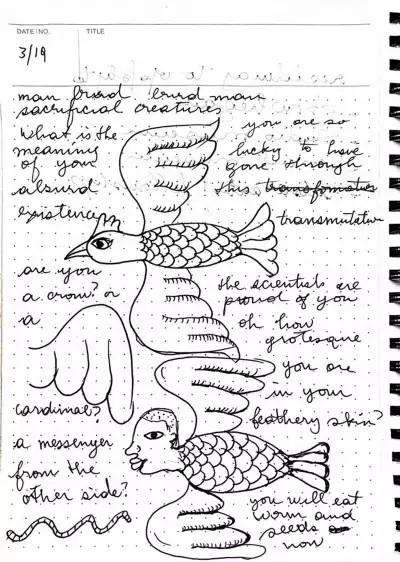 DATE/NO.
TITLE
3/19
man bird bird man
sacrificial creatures
What is the
meaning
of your
absurd
existence
you are so
lucky to have
gone through
this transformation
transmutation
are you
a crow? or
a
cardinal?
a messenger
from the
other side?
the scientists are
proud of you
oh how
grotesque
you are
in your
feathery skin?
you will eat
worm and
seeds
now